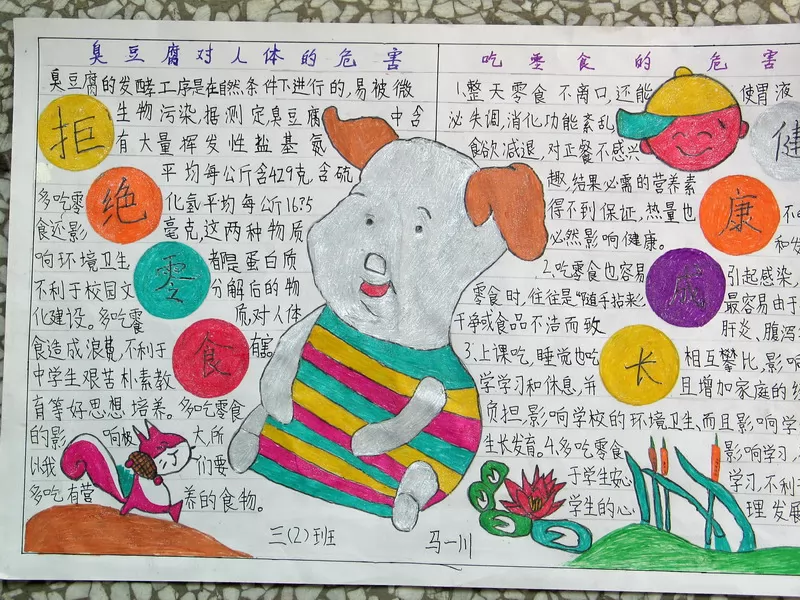 臭豆腐对人体的危害
臭豆腐的发酵工序是在自然条件下进行的,易被微
生物污染,据测定臭豆腐中含
有大量挥发性盐基氮
平均每公斤含429克,含硫
化氢平均每公斤1635
毫克,这两种物质
都是蛋白质
分解后的物
质,对人体
有害。
拒
绝
零
食
多吃零
食还影
响环境卫生
不利于校园文
化建设。多吃零
食造成浪费,不利于
中学生艰苦朴素教
育等好思想培养。多吃零食
的影响极大,所
以我们要
多吃有营养的食物。
三(2)班 马一川
吃零食的危害
1.整天零食不离口,还能使胃液
泌失调,消化功能紊乱
食欲减退,对正餐不感兴
趣,结果必需的营养素
得不到保证,热量也
必然影响健康。
2.吃零食也容易引起感染,
零食时,往往是"随手拈来
最容易由于
干净或食品不洁而致肝炎、腹泻
3.上课吃,睡觉也吃相互攀比,影响
学学习和休息,并且增加家庭的经
负担,影响学校的环境卫生,而且影响学
生长发育。4.多吃零食影响学习,
于学生安心学习,不利于
学生的心理发展
健
康
成
长